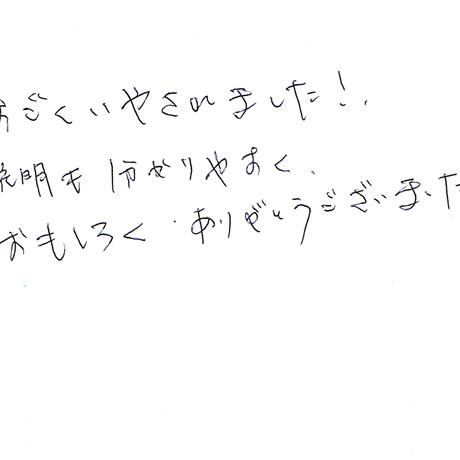 すごくいやされました!
説明も分かりやすく、
おもしろく、ありがとうございました